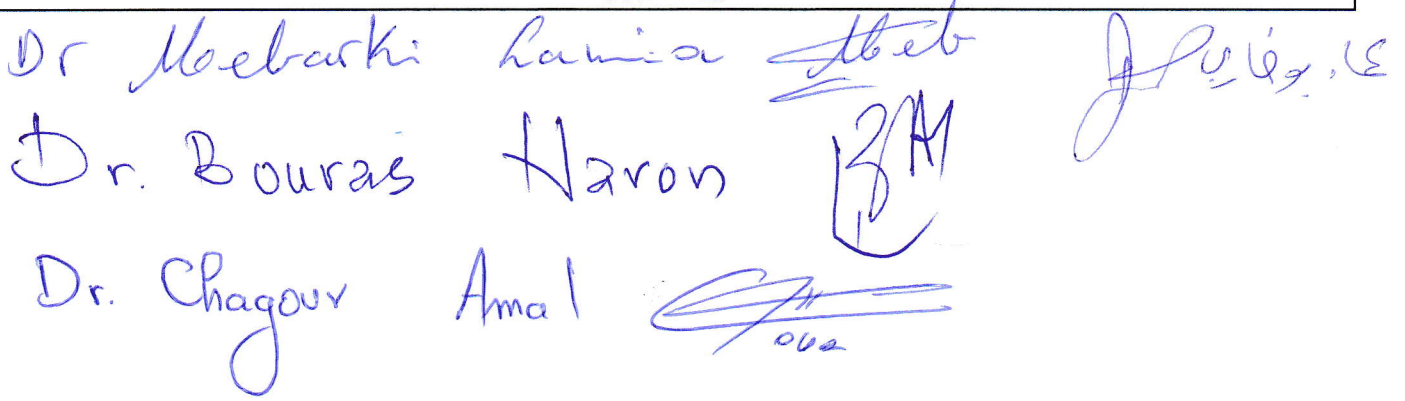 Dr Mebarki Lamia
Dr. Bouras Haron
Dr. Chagour Amal